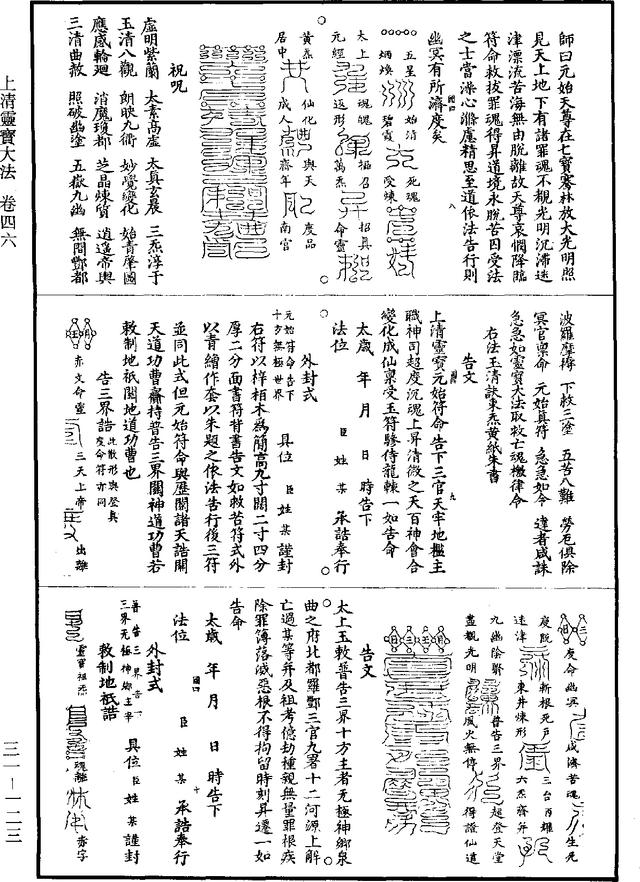 上清靈寶大法 卷四六
三一—一二三
師曰元始天尊在七寶騫林放大光明照
見天上地下有諸罪魂不覩光明沉滯迷
津漂流苦海無由脫離故天尊哀憫降臨
符命救拔罪魂得昇道境永脫苦因受法
之士當滌心滌慮精思至道依法告行則
幽冥有所濟度矣
五星 始清 死魂
炳煥 碧霞 受煉
太上 魂魄 樞召 招真
元經 返形 萬炁 命靈
黃炁 仙化 與天 度品
居中 成人 齊年 南宮
祝呪
虛明紫蘭 太素高虛 太真玄晨 三炁淳于
玉清八觀 朗映九衢 妙覺變化 始青肇國
應感輪迴 消魔瓊都 芝晶煉質 逍遙帝輿
三清曲赦 照破幽塗 五嶽九幽 無間酆都
波羅摩梯 下赦三塗 五苦八難 勞厄俱除
冥官稟命 元始真符 急急如令 違者咸誅
急急如靈寶大法取救亡魂檄律令
右法玉清訣東炁黃紙朱書
告文
上清靈寶元始符命告下三官天牢地檻主
職神司超度沉魂上昇清微之天百神會合
變化成仙稟受玉符驂侍龍輧一如告命
太歲 年 月 日 時告下
法位 臣 姓 某 承誥奉行
外封式
元始符命告下
十方無極世界 具位 臣 姓 某 謹封
右符以梓栢木為簡高九寸闊二寸四分
厚二分面書符背書告文如救苦符式外
以青繒作套以朱題之依法告行後三符
並同此式但元始符命與歷關諸天誥關
天道功曹齎持普告三界關神道功曹若
敕制地祇關地道功曹也
告三界誥 此散形與登真
度命符亦同
赤文命靈 三天上帝 出離
度命幽冥 成濟苦魂 生死
度脫 斬根死戶 三台丙耀
迷津 東井煉形 六炁齊并
九幽陰翳 普告三界 超登天堂
盡覩光明 風火無停 得證仙道
告文
太上玉敕普告三界十方主者无極神鄉泉
曲之府北都羅酆三官九署十二河源上解
亡過某等并及祖考億劫種親無量罪根疾
除罪簿落滅惡根不得拘留時刻昇遷一如
告命
太歲 年 月 日 時告下
法位 臣 姓 某 承誥奉行
外封式
普告三界告下
三界无極神鄉主宰 具位 臣 姓 某 謹封
敕制地祇誥
靈寶祖炁 魂離 赤字